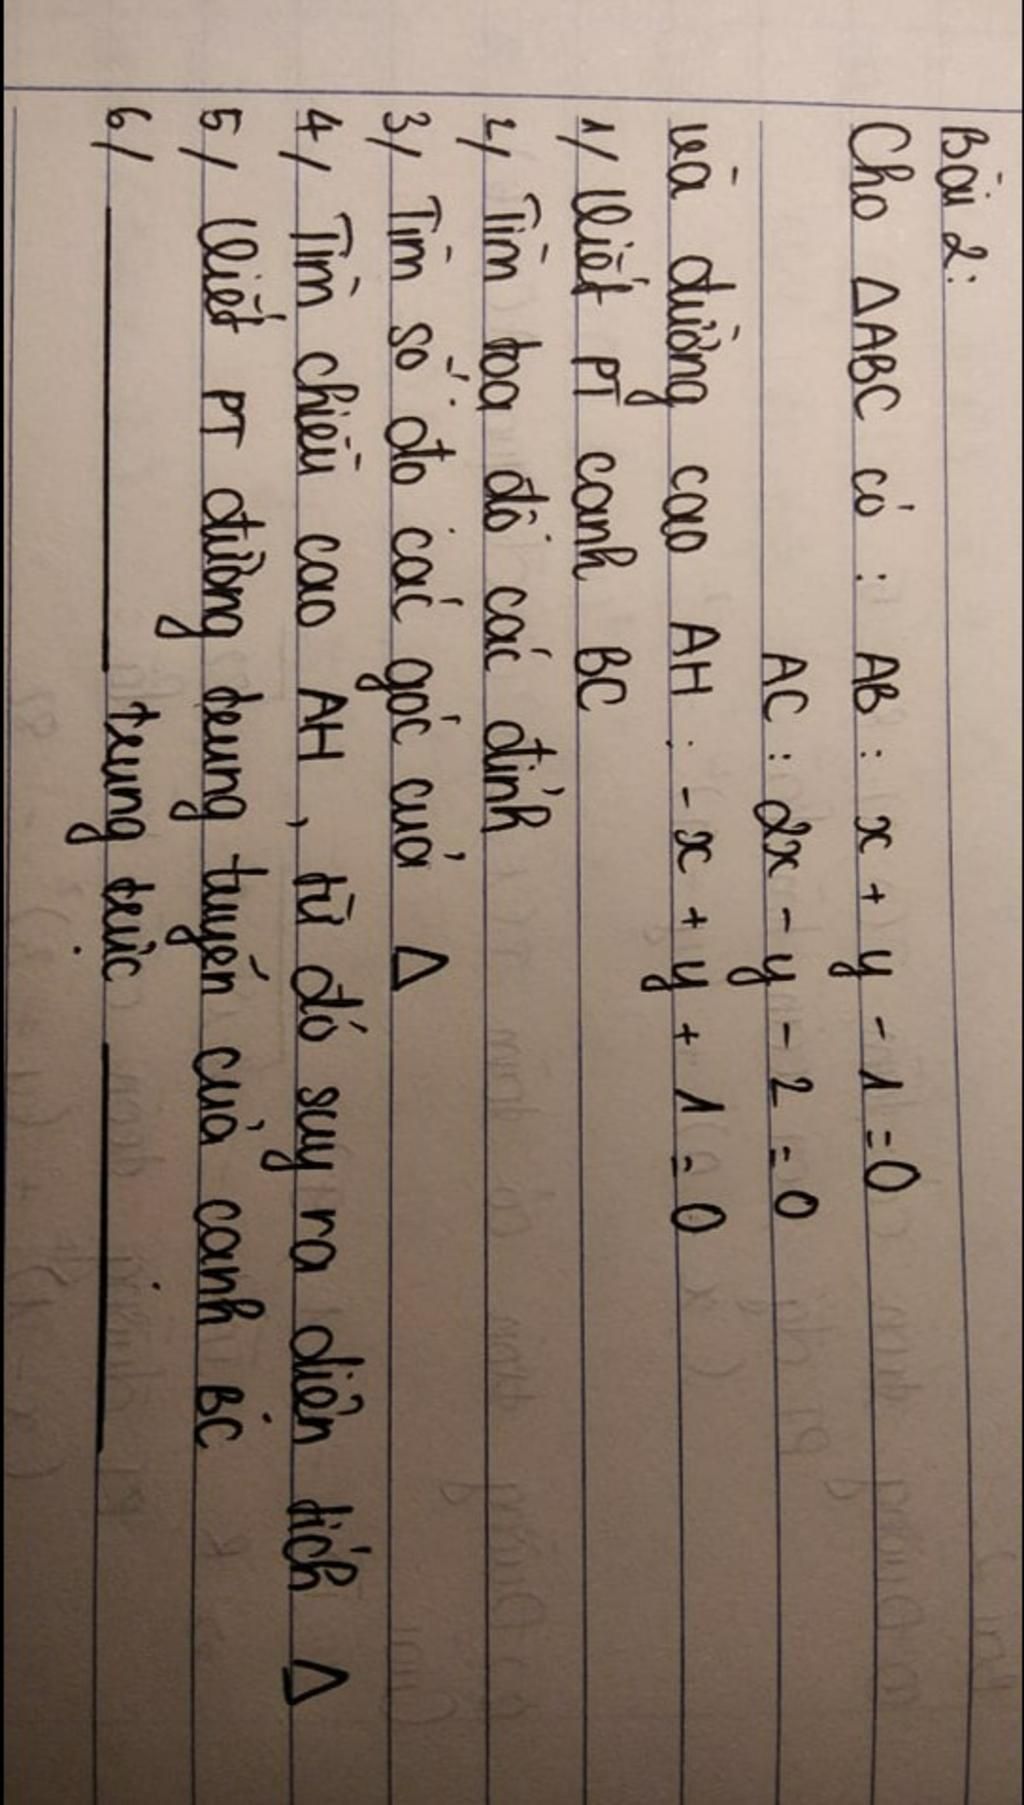 Bài 2:
Cho ΔABC có : AB : x + y - 1 = 0
AC : 2x - y - 2 = 0
và đường cao AH : -x + y + 1 = 0
1/ Viết PT cạnh BC
2/ Tìm toạ độ các đỉnh
3/ Tìm số đo các góc của Δ
4/ Tìm chiều cao AH, từ đó suy ra diện tích Δ
5/ Viết PT đường trung tuyến của cạnh BC
6/ ________ trung trực ________